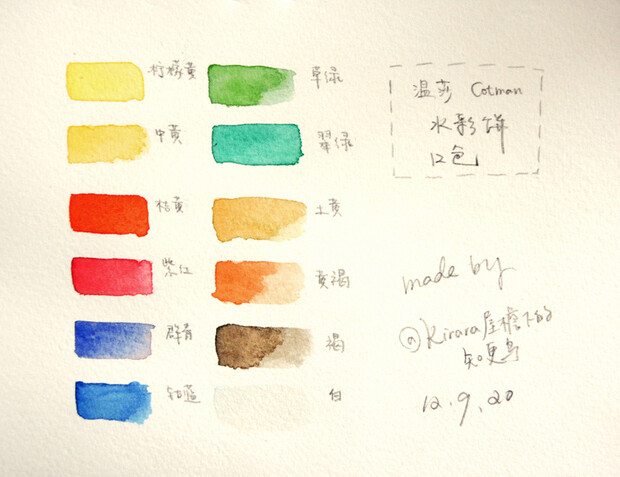 柠檬黄
草绿
中黄
翠绿
桔黄
土黄
紫红
黄褐
群青
褐
钴蓝
白
温莎 Cotman
水彩饼
12色
made by
@Kirara屋檐下的
知更鸟
12.9.20